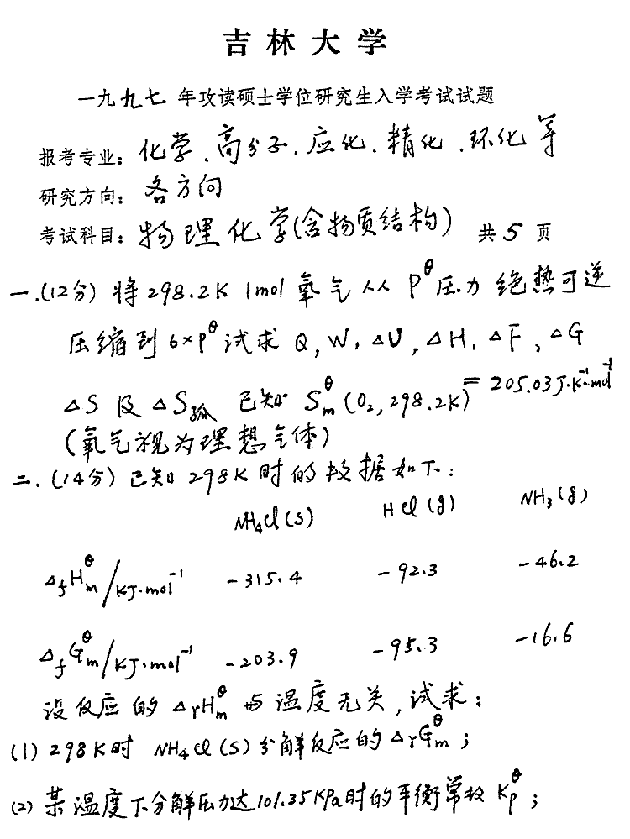 吉林大学
一九九七 年攻读硕士学位研究生入学考试试题
报考专业: 化学、高分子、应化、精化、环化等
研究方向: 各方向
考试科目: 物理化学(含物质结构) 共5页
一.(12分) 将298.2K 1mol 氧气从 P^θ 压力 绝热可逆
压缩到 6×P^θ 试求 Q, W, ΔU, ΔH, ΔF, ΔG
ΔS 及 ΔS孤 已知 S_m^θ (O₂, 298.2K) = 205.03 J·K⁻¹·mol⁻¹
(氧气视为理想气体)
二.(14分) 已知 298K 时的数据如下:
NH₄Cl(s) HCl(g) NH₃(g)
Δ_fH_m^θ/KJ·mol⁻¹ -315.4 -92.3 -46.2
Δ_fG_m^θ/KJ·mol⁻¹ -203.9 -95.3 -16.6
设反应的 Δ_rH_m^θ 与温度无关, 试求:
(1) 298K时 NH₄Cl(s) 分解反应的 Δ_rG_m^θ;
(2) 某温度下分解压力达101.35KPa时的平衡常数 K_p^θ;